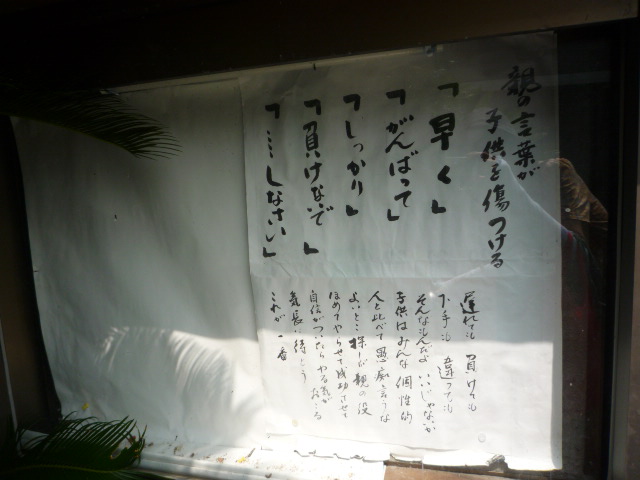 親の言葉が
子供を傷つける
「早く」
「がんばって」
「しっかり」
「負けないで」
「…しなさい」
遅れても 負けても
下手でも 違っても
そんなもんだよ いいじゃないか
子供はみんな 個性的
人と比べて 愚痴を言うな
よいとこ探しが親の役
ほめてやらせて成功させて
自信がついたらやる気がおこる
気長に待とう
これが一番